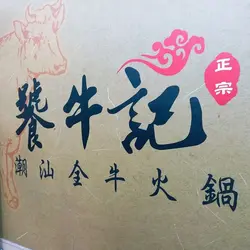 正宗
饕牛記
潮汕全牛火鍋